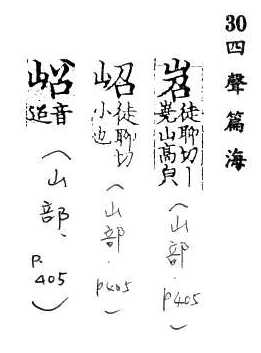 30四聲篇海
岧
徒聊切丨
嶤山高皃
(山部.P405)
岹
徒聊切
小也
(山部.P405)
音
(山部.P.405)